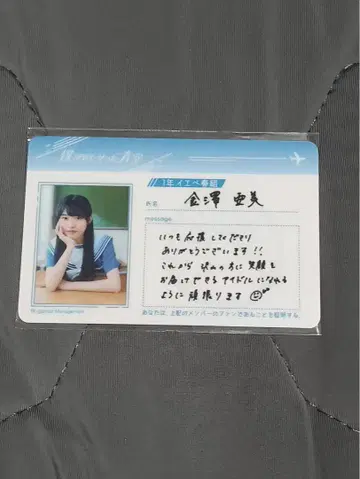 僕が見たかった青空
1年イエベ番組
氏名 金澤 亜美
message
いつも応援してくださり
ありがとうございます!!
これから 沢山の方に 笑顔を
お届けできる アイドルになれる
ように 頑張ります
あなたは、上記のメンバーのファンであることを証明する。